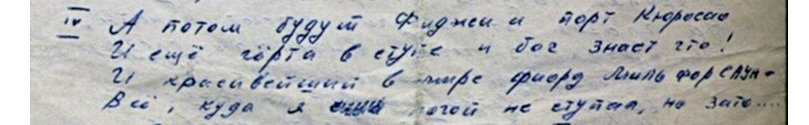 IV А потом будут Фиджи и порт Кюросао
И ещё чёрта в ступе и бог знает что!
И красивейший в мире фиорд Мильфорсаун-
Всё, куда я ногой не ступал, но зато....